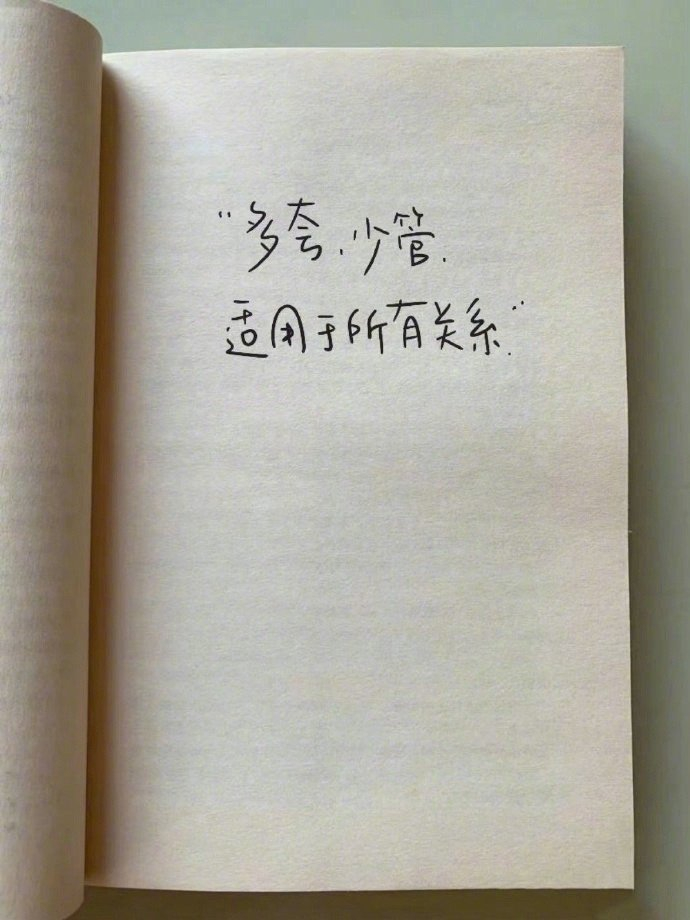 “多夸、少管.
适用于所有关系.”